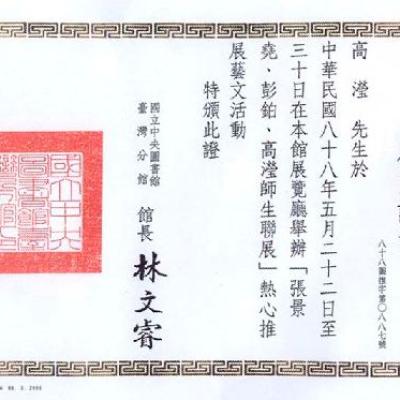 八十八圖推字第〇八八七號
高 瀅 先生於
中華民國八十八年五月二十二日至
三十日在本館展覽廳舉辦「張景
堯、彭鉑、高瀅師生聯展」熱心推
展藝文活動
特頒此證
國立中央圖書館
臺灣分館
館長 林文睿
88. 3. 2000